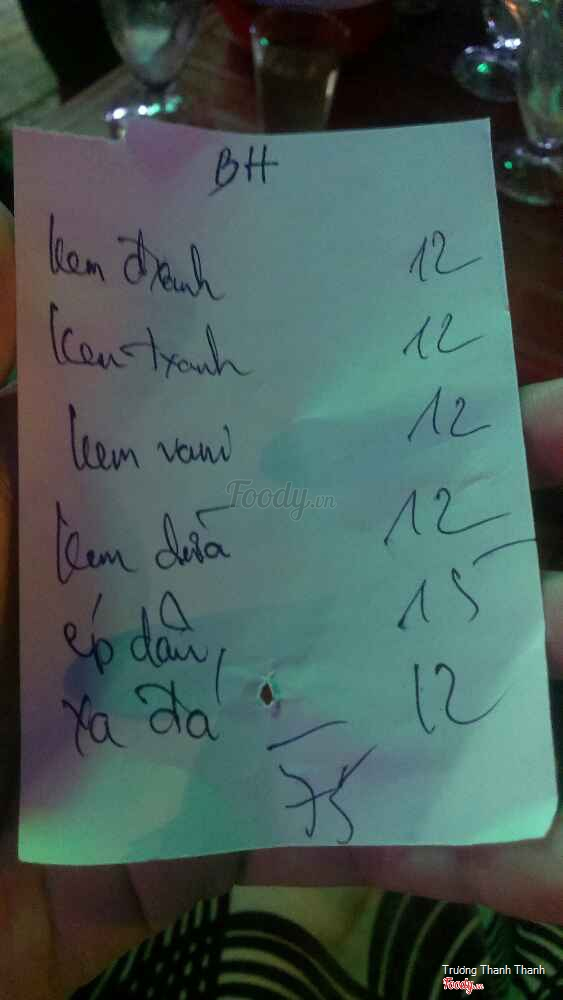 BH
Kem đxanh 12
Kem đxanh 12
Kem vani 12
Kem dừa 12
ép dâu 15
xa đá 12
75
Foody.vn
Trương Thanh Thanh
Foody.vn